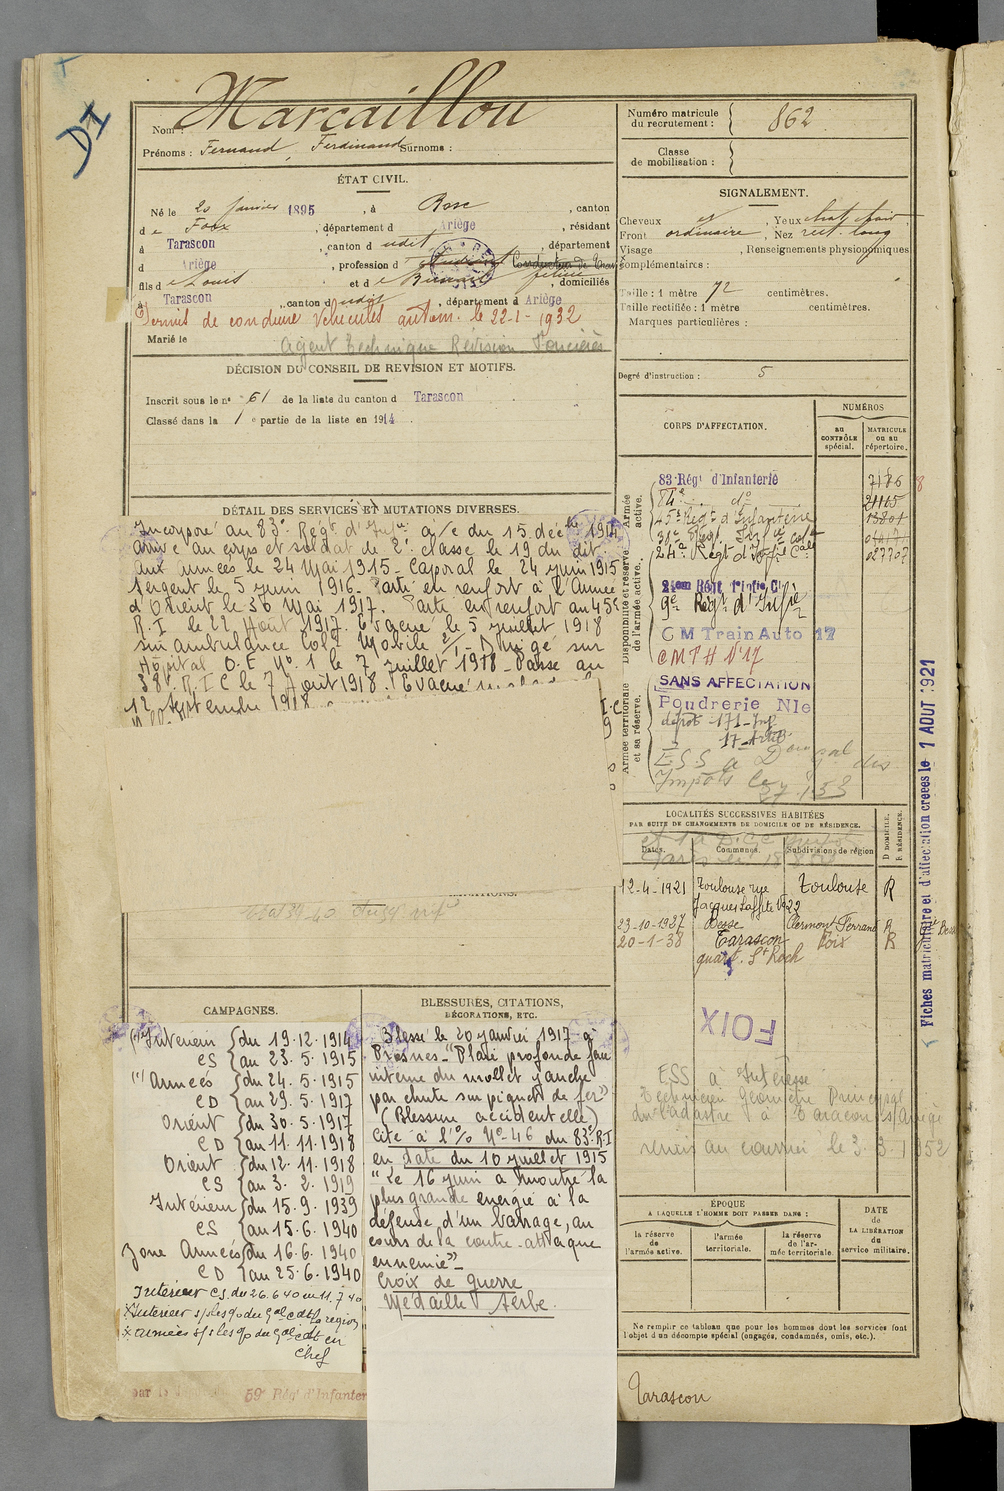 DI
Nom : Marcaillou
Prénoms : Fernand, Ferdinand Surnoms :
ÉTAT CIVIL.
Né le 20 Janvier 1895, à , canton
de Foix, département d Ariège, résidant
à Tarascon, canton d udit, département
d Ariège, profession d
fils de Louis et de , domiciliés
à Tarascon, canton dudit, département d Ariège
Permis de conduire véhicules autom. le 22-1-1932
Marié le
Agent technique Révision Foncières
DÉCISION DU CONSEIL DE REVISION ET MOTIFS.
Inscrit sous le n° 61 de la liste du canton d Tarascon
Classé dans la 1e partie de la liste en 1914.
DÉTAIL DES SERVICES ET MUTATIONS DIVERSES.
Incorporé au 83e Régt d'Infie à/c du 15 décbre 1914
arrivé au corps et soldat de 2e classe le 19 du dit
aux armées le 24 Mai 1915. Caporal le 24 juin 1915
Sergent le 5 juin 1916. Parti en renfort à l'Armée
d'Orient le 30 Mai 1917. Parti en renfort au 45e
R.I. le 22 Août 1917. Evacué le 5 juillet 1918
sur ambulance Colle Mobile 2/1 - Dirigé sur
Hôpital O.E. No. 1 le 7 juillet 1918 - Passé au
38e R.I.C le 7 Août 1918. Evacué
12 Septembre 1918
CAMPAGNES.
Intérieur {du 19.12.1914
CS {au 23.5.1915
(1) Armées {du 24.5.1915
CD {au 29.5.1917
Orient {du 30.5.1917
CD {au 11.11.1918
Orient {du 12.11.1918
CS {au 3.2.1919
Intérieur {du 15.9.1939
CS {au 15.6.1940
Zone Armées {du 16.6.1940
CD {au 25.6.1940
Intérieur CS. du 26.6.40 au 11.7.40
x Intérieur s/ les go du Gal cdt la région
x armées s/ les go du Gal cdt en
Chef
BLESSURES, CITATIONS,
DÉCORATIONS, ETC.
Blessé le 20 janvier 1917 à
Presnes - "Plaie profonde face
interne du mollet gauche
par chute sur piquet de fer"
(Blessure accidentelle)
Cité à l'o/o No 46 du 83e R.I
en date du 10 juillet 1915
"Le 16 juin a montré la
plus grande énergie à la
défense d'un barrage, au
cours de la contre-attaque
ennemie" -
Croix de guerre
Médaille Serbe.
59e Régt d'Infanter
Numéro matricule
du recrutement : 862
Classe
de mobilisation :
SIGNALEMENT.
Cheveux et, Yeux chat. noir
Front ordinaire, Nez rect. long
Visage , Renseignements physionomiques
complémentaires :
Taille : 1 mètre 72 centimètres.
Taille rectifiée : 1 mètre centimètres.
Marques particulières :
Degré d'instruction : 5
CORPS D'AFFECTATION.
NUMÉROS
au
CONTRÔLE
spécial.
MATRICULE
ou au
répertoire.
Armée
active.
83e Régt d'Infanterie 7186
84e do 21165
45e Régt d'Infanterie 13801
38e Régt Infie Cole
24e Régt d'Infie Cale 027707
Disponibilité et réserve
de l'armée active.
24ème Régt d'Infie Cle
9e Régt d'Infie
CM Train Auto 17
CMPH No 17
Armée territoriale
et sa réserve.
SANS AFFECTATION
Poudrerie Nle
dépôt 171 - Inf
17 - Artie
ESS à
Impôts le
27.1.53
LOCALITÉS SUCCESSIVES HABITÉES
PAR SUITE DE CHANGEMENTS DE DOMICILE OU DE RÉSIDENCE.
Dates. Communes. Subdivisions de région
D DOMICILE.
R RÉSIDENCE.
12-4-1921 Toulouse rue Toulouse R
Jacques Laffite No 22
23-10-1937 Besse Clermont-Ferrand R
20-1-38 Tarascon Foix R
quart. St Roch
FOIX
ESS à
Technicien Géomètre Principal
du Cadastre à Tarascon s/Ariège
remis au courrier le 3.3.1952
ÉPOQUE
A LAQUELLE L'HOMME DOIT PASSER DANS :
la réserve
de
l'armée active.
l'armée
territoriale.
la réserve
de l'ar-
mée territoriale.
DATE
de
LA LIBÉRATION
du
service militaire.
Ne remplir ce tableau que pour les hommes dont les services font
l'objet d'un décompte spécial (engagés, condamnés, omis, etc.).
Tarascon
Fiches matriculaire et d'affectation créées le 1 AOUT 1921